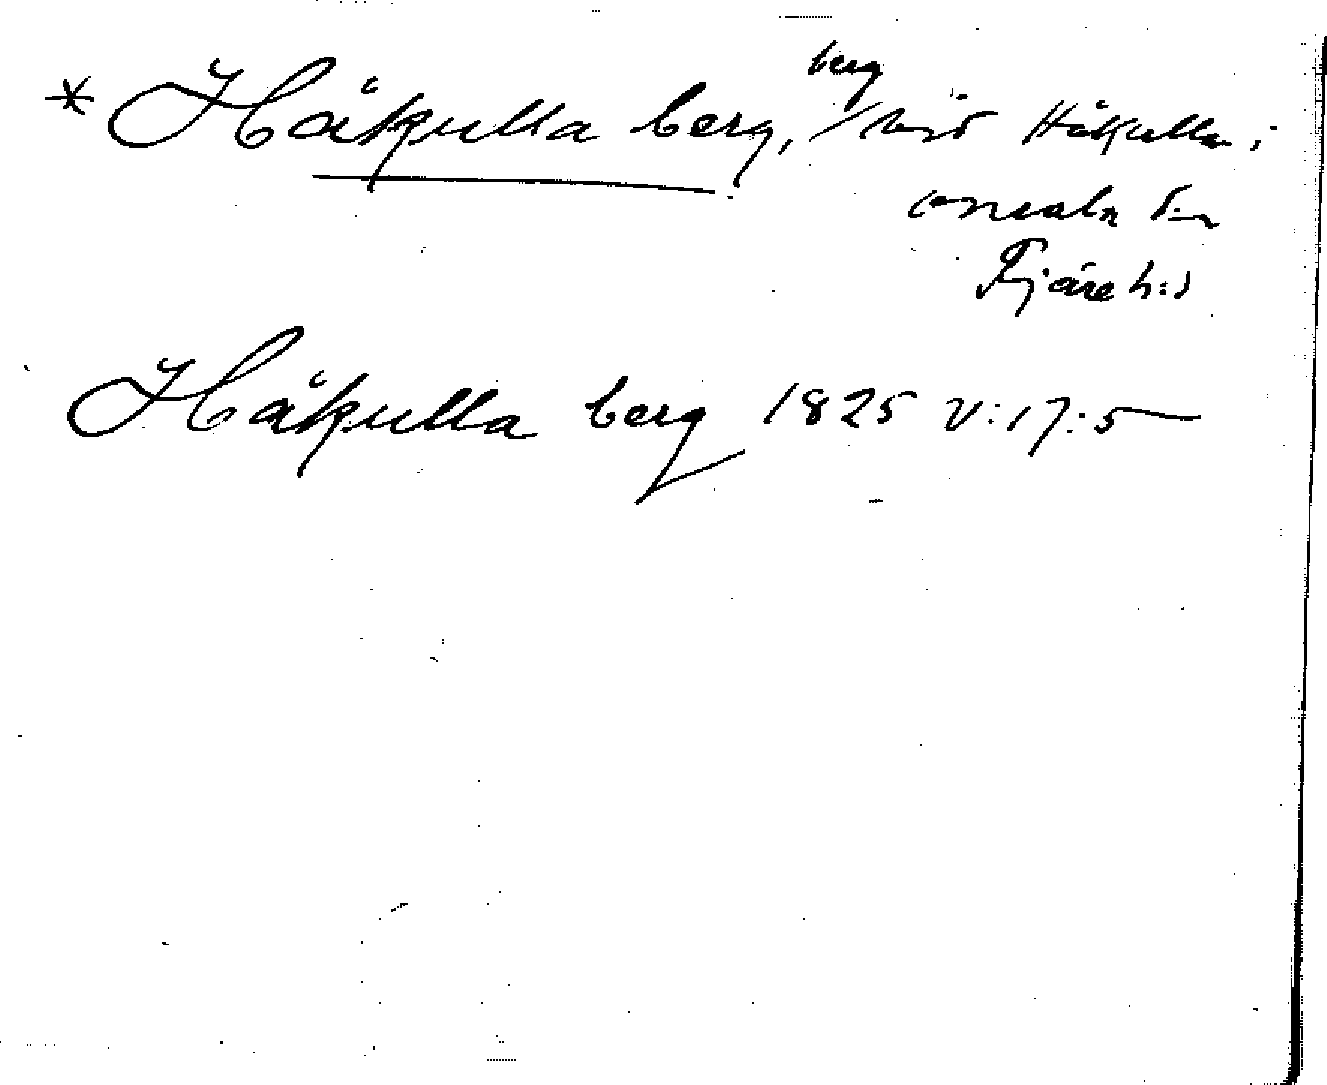 * Håkulla berg, berg vid Håkulla i
Onsala sn
Fjäre h:d
Håkulla berg 1825 V:17:5